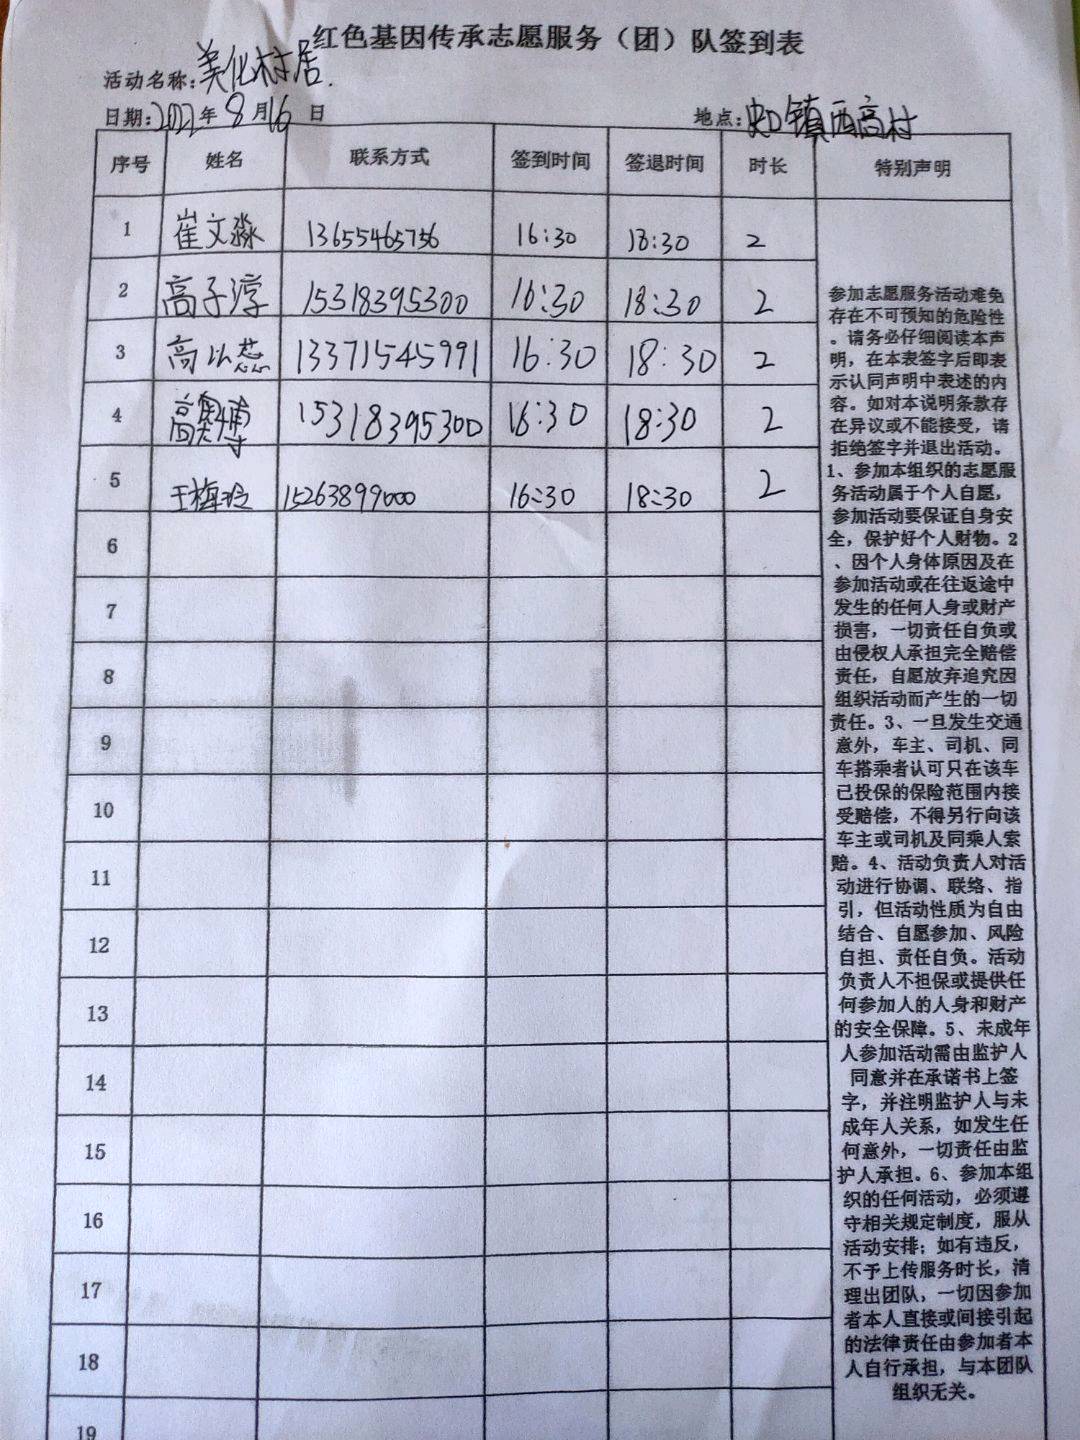 红色基因传承志愿服务（团）队签到表
活动名称：美化村居.
日期：2022年8月16日 地点：史口镇西高村
序号 姓名 联系方式 签到时间 签退时间 时长 特别声明
1 崔文淼 13655465756 16:30 18:30 2
2 高子淳 15318395300 16:30 18:30 2
3 高以芯 13371545991 16:30 18:30 2
4 高奥博 15318395300 16:30 18:30 2
5 王梅玲 15263899000 16:30 18:30 2
6
7
8
9
10
11
12
13
14
15
16
17
18
19
参加志愿服务活动难免
存在不可预知的危险性
。请务必仔细阅读本声
明，在本表签字后即表
示认同声明中表述的内
容。如对本说明条款存
在异议或不能接受，请
拒绝签字并退出活动。
1、参加本组织的志愿服
务活动属于个人自愿，
参加活动要保证自身安
全，保护好个人财物。2
、因个人身体原因及在
参加活动或在往返途中
发生的任何人身或财产
损害，一切责任自负或
由侵权人承担完全赔偿
责任，自愿放弃追究因
组织活动而产生的一切
责任。3、一旦发生交通
意外，车主、司机、同
车搭乘者认可只在该车
已投保的保险范围内接
受赔偿，不得另行向该
车主或司机及同乘人索
赔。4、活动负责人对活
动进行协调、联络、指
引，但活动性质为自由
结合、自愿参加、风险
自担、责任自负。活动
负责人不担保或提供任
何参加人的人身和财产
的安全保障。5、未成年
人参加活动需由监护人
同意并在承诺书上签
字，并注明监护人与未
成年人关系，如发生任
何意外，一切责任由监
护人承担。6、参加本组
织的任何活动，必须遵
守相关规定制度，服从
活动安排；如有违反，
不予上传服务时长，清
理出团队，一切因参加
者本人直接或间接引起
的法律责任由参加者本
人自行承担，与本团队
组织无关。